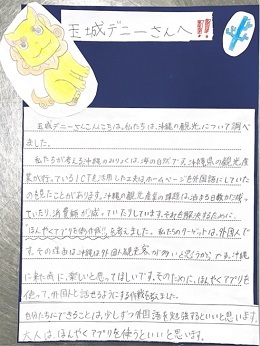 玉城デニーさんへ
玉城デニーさんこんにちは。私たちは、沖縄の観光について調べ
ました。
私たちが考える沖縄のみりょくは、海の自然です。沖縄県の観光産
業が行っているICTを活用した工夫は、ホームページを外国語にしていた
のを見たことがあります。沖縄の観光産業の課題は、泊まる日数が減っ
ていたり、消費額が減っていたりしています。それを解決するために、
ほんやくアプリを使う作戦!!を考えました。私たちのターゲットは、外国人で
す。その理由は、沖縄は外国人観光客が多いと思うからです。沖縄
に来た時に、楽しいと思ってほしいです。そのために、ほんやくアプリを
使って、外国人と話せるようにする作戦を考えました。
自分たちにできることは、少しずつ外国語を勉強するといいと思います。
大人は、ほんやくアプリを使うといいと思います。